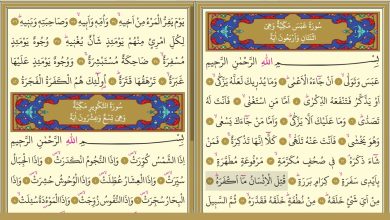 سُورَةُ عَبَسَ مَكِّيَّةٌ وَهِيَ
اثْنَتَانِ وَأَرْبَعُونَ آيَةً
بِسْمِ اللّٰهِ الرَّحْمٰنِ الرَّحِيمِ
عَبَسَ وَتَوَلّٰىۙ اَنْ جَٓاءَهُ الْاَعْمٰىۜ وَمَا يُدْرِيكَ لَعَلَّهُ يَزَّكّٰىۙ
اَوْ يَذَّكَّرُ فَتَنْفَعَهُ الذِّكْرٰىۜ اَمَّا مَنِ اسْتَغْنٰىۙ فَاَنْتَ لَهُ
تَصَدّٰىۜ وَمَا عَلَيْكَ اَلَّا يَزَّكّٰىۜ وَاَمَّا مَنْ جَٓاءَكَ يَسْعٰىۙ
وَهُوَ يَخْشٰىۙ فَاَنْتَ عَنْهُ تَلَهّٰىۚ كَلَّٓا اِنَّهَا تَذْكِرَةٌۚ فَمَنْ
شَٓاءَ ذَكَرَهُۢ فِي صُحُفٍ مُكَرَّمَةٍۙ مَرْفُوعَةٍ مُطَهَّرَةٍۙ
بِاَيْدِي سَفَرَةٍۙ كِرَامٍ بَرَرَةٍۜ قُتِلَ الْاِنْسَانُ مَٓا اَكْفَرَهُۜ
مِنْ اَيِّ شَيْءٍ خَلَقَهُۜ مِنْ نُطْفَةٍۜ خَلَقَهُ فَقَدَّرَهُۙ ثُمَّ السَّبِيلَ
يَوْمَ يَفِرُّ الْمَرْءُ مِنْ اَخِيهِۙ وَاُمِّهِ وَاَبِيهِۙ وَصَاحِبَتِهِ وَبَنِيهِۜ
لِكُلِّ امْرِئٍ مِنْهُمْ يَوْمَئِذٍ شَأْنٌ يُغْنِيهِۜ وُجُوهٌ يَوْمَئِذٍ
مُسْفِرَةٌۙ ضَاحِكَةٌ مُسْتَبْشِرَةٌۚ وَوُجُوهٌ يَوْمَئِذٍ عَلَيْهَا
غَبَرَةٌۙ تَرْهَقُهَا قَتَرَةٌۜ اُو۬لٰٓئِكَ هُمُ الْكَفَرَةُ الْفَجَرَةُ
سُورَةُ التَّكْوِيرِ مَكِّيَّةٌ
وَهِيَ تِسْعٌ وَعِشْرُونَ آيَةً
بِسْمِ اللّٰهِ الرَّحْمٰنِ الرَّحِيمِ
اِذَا الشَّمْسُ كُوِّرَتْۙ وَاِذَا النُّجُومُ انْكَدَرَتْۙ وَاِذَا الْجِبَالُ
سُيِّرَتْۙ وَاِذَا الْعِشَارُ عُطِّلَتْۙ وَاِذَا الْوُحُوشُ حُشِرَتْۙ
وَاِذَا الْبِحَارُ سُجِّرَتْۙ وَاِذَا النُّفُوسُ زُوِّجَتْۙ وَاِذَا